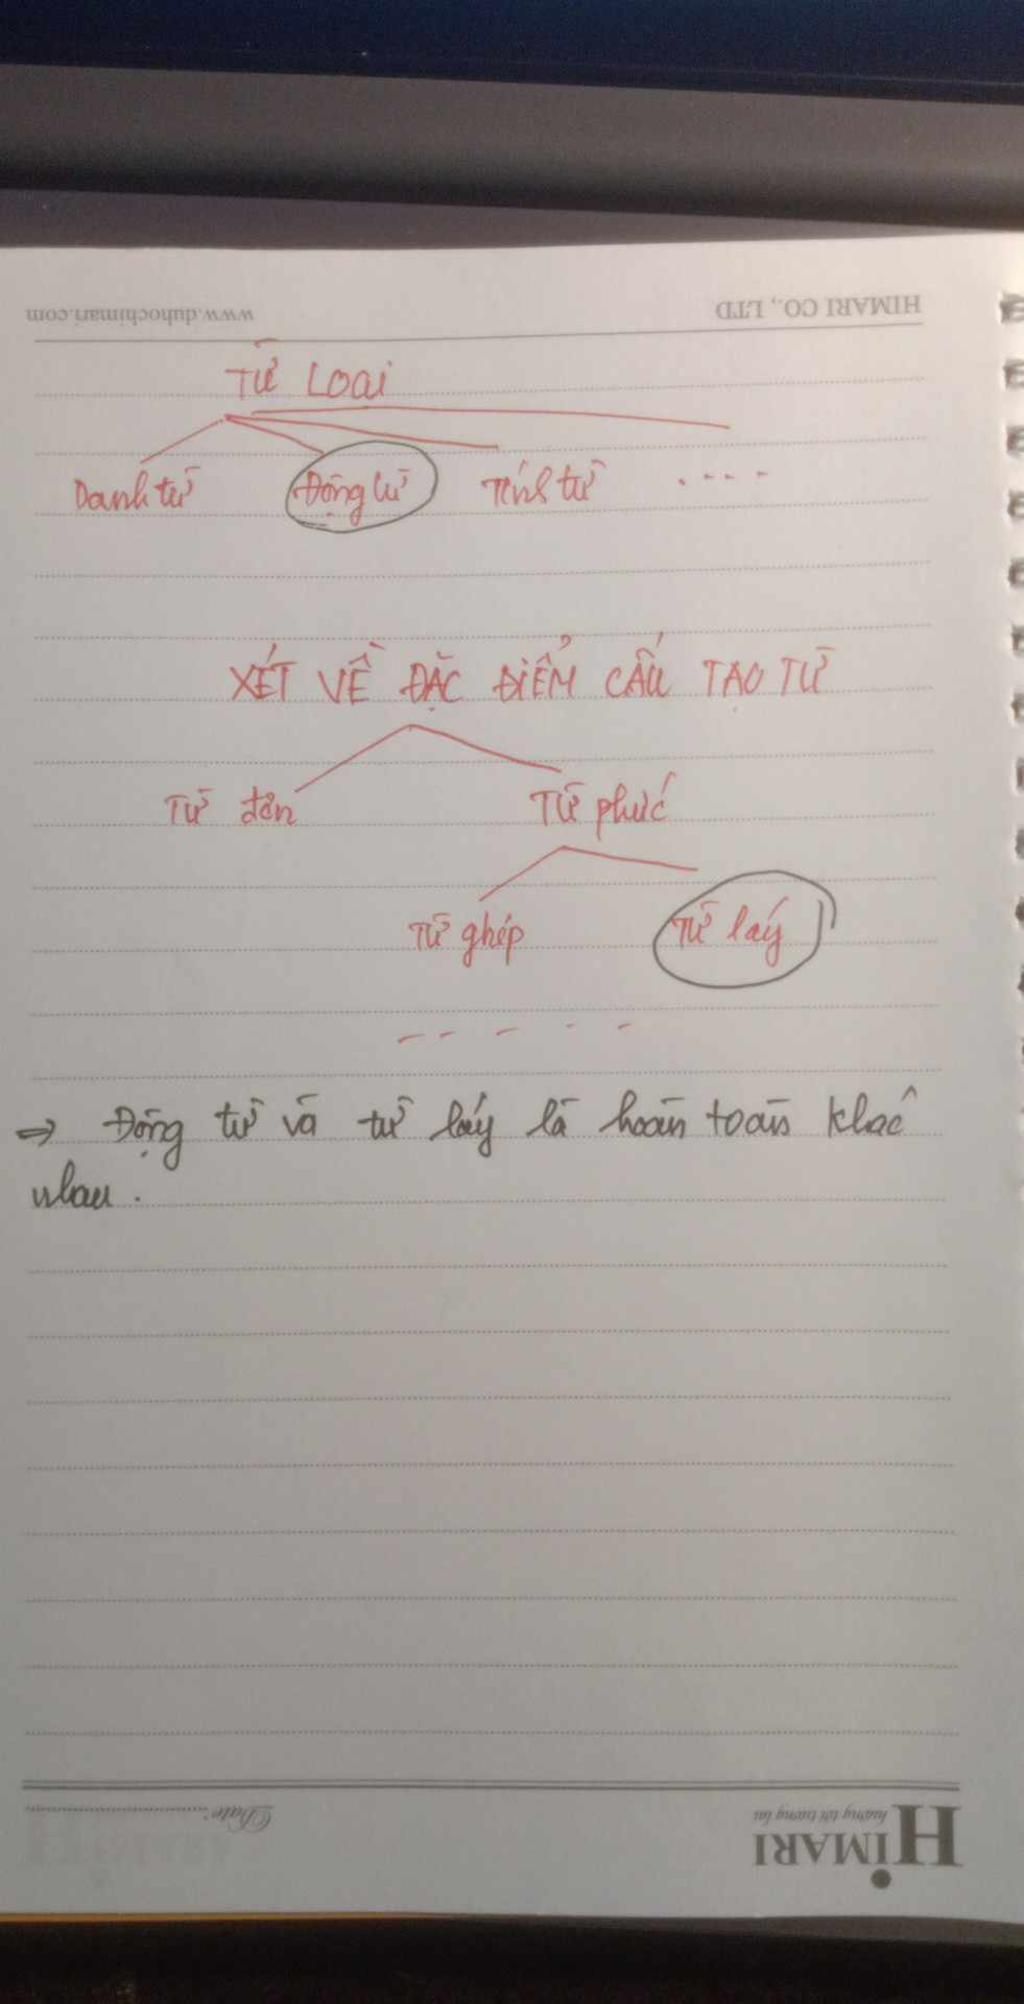 www.duhochimari.com HIMARI CO., LTD
TỪ LOẠI
Danh từ Động từ Tính từ ....
XÉT VỀ ĐẶC ĐIỂM CẤU TẠO TỪ
Từ đơn Từ phức
Từ ghép Từ láy
- - - - -
=> Động từ và từ láy là hoàn toàn khác
nhau.
Date:
HIMARI
hướng tới tương lai